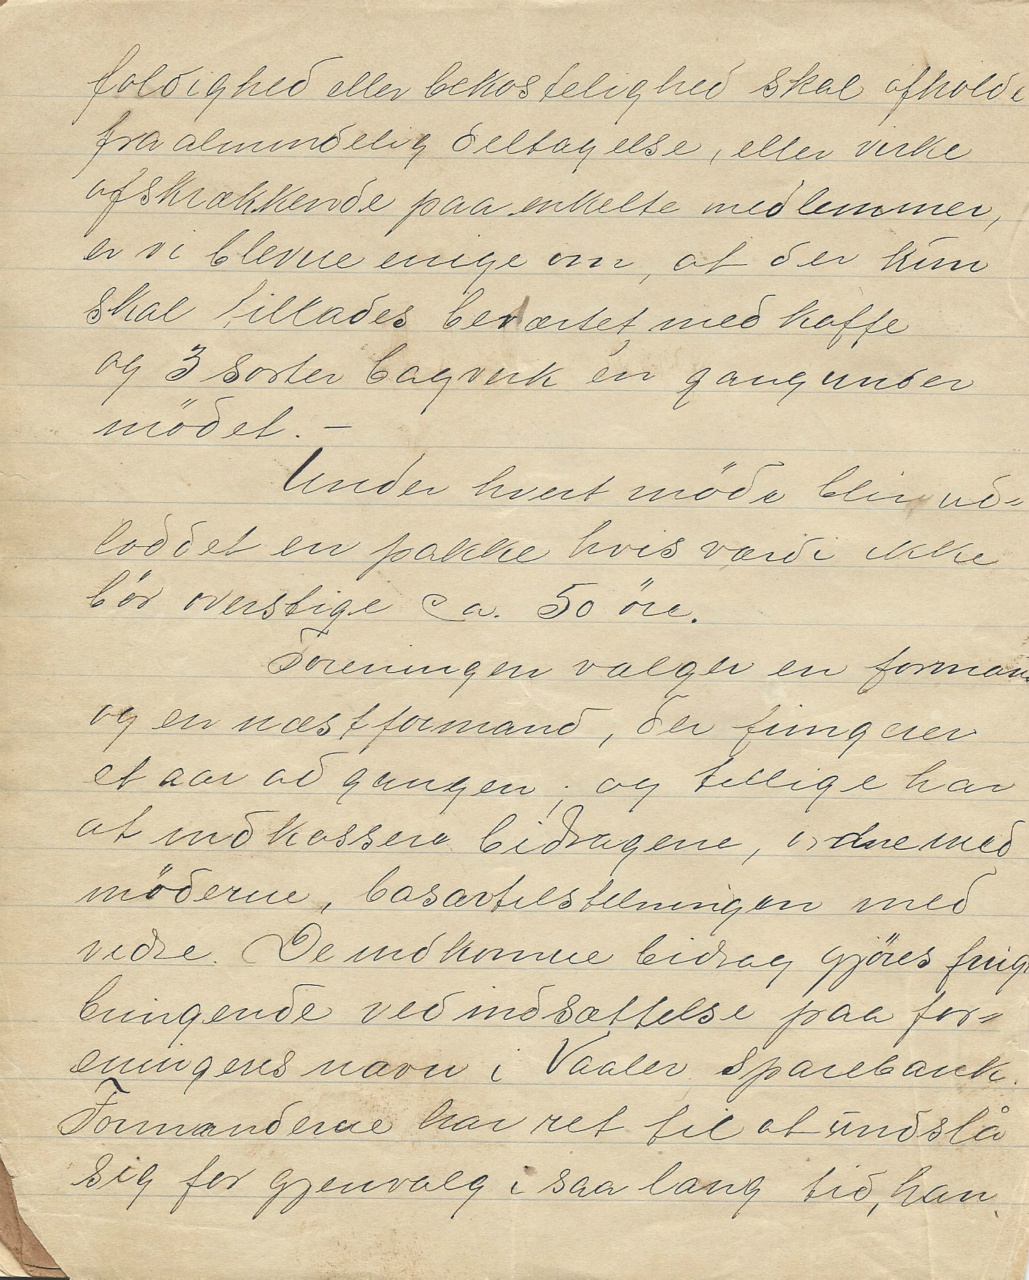 foldighed eller bekostelighed skal afholde
fra almindelig deltagelse, eller virke
afskrækkende paa enkelte medlemmer,
er vi blevne enige om, at der kun
skal tillades beværtet med kaffe
og 3 sorter bagverk én gang under
mödet. –
Under hvert möde blir ud=
loddet en pakke hvis værdi ikke
bör overstige ca. 50 öre.
Foreningen vælger en formand
og en næstformand, der fungerer
et aar ad gangen, og tillige har
at indkassere bidragene, ordne med
möderne, basartilstelningen med
vidre. De indkomne bidrag gjöres frugt
bringende ved indsættelse paa for=
eningens navn i Vaaler sparebank.
Formanderne har ret til at undslå
sig for gjenvalg i saa lang tid, han